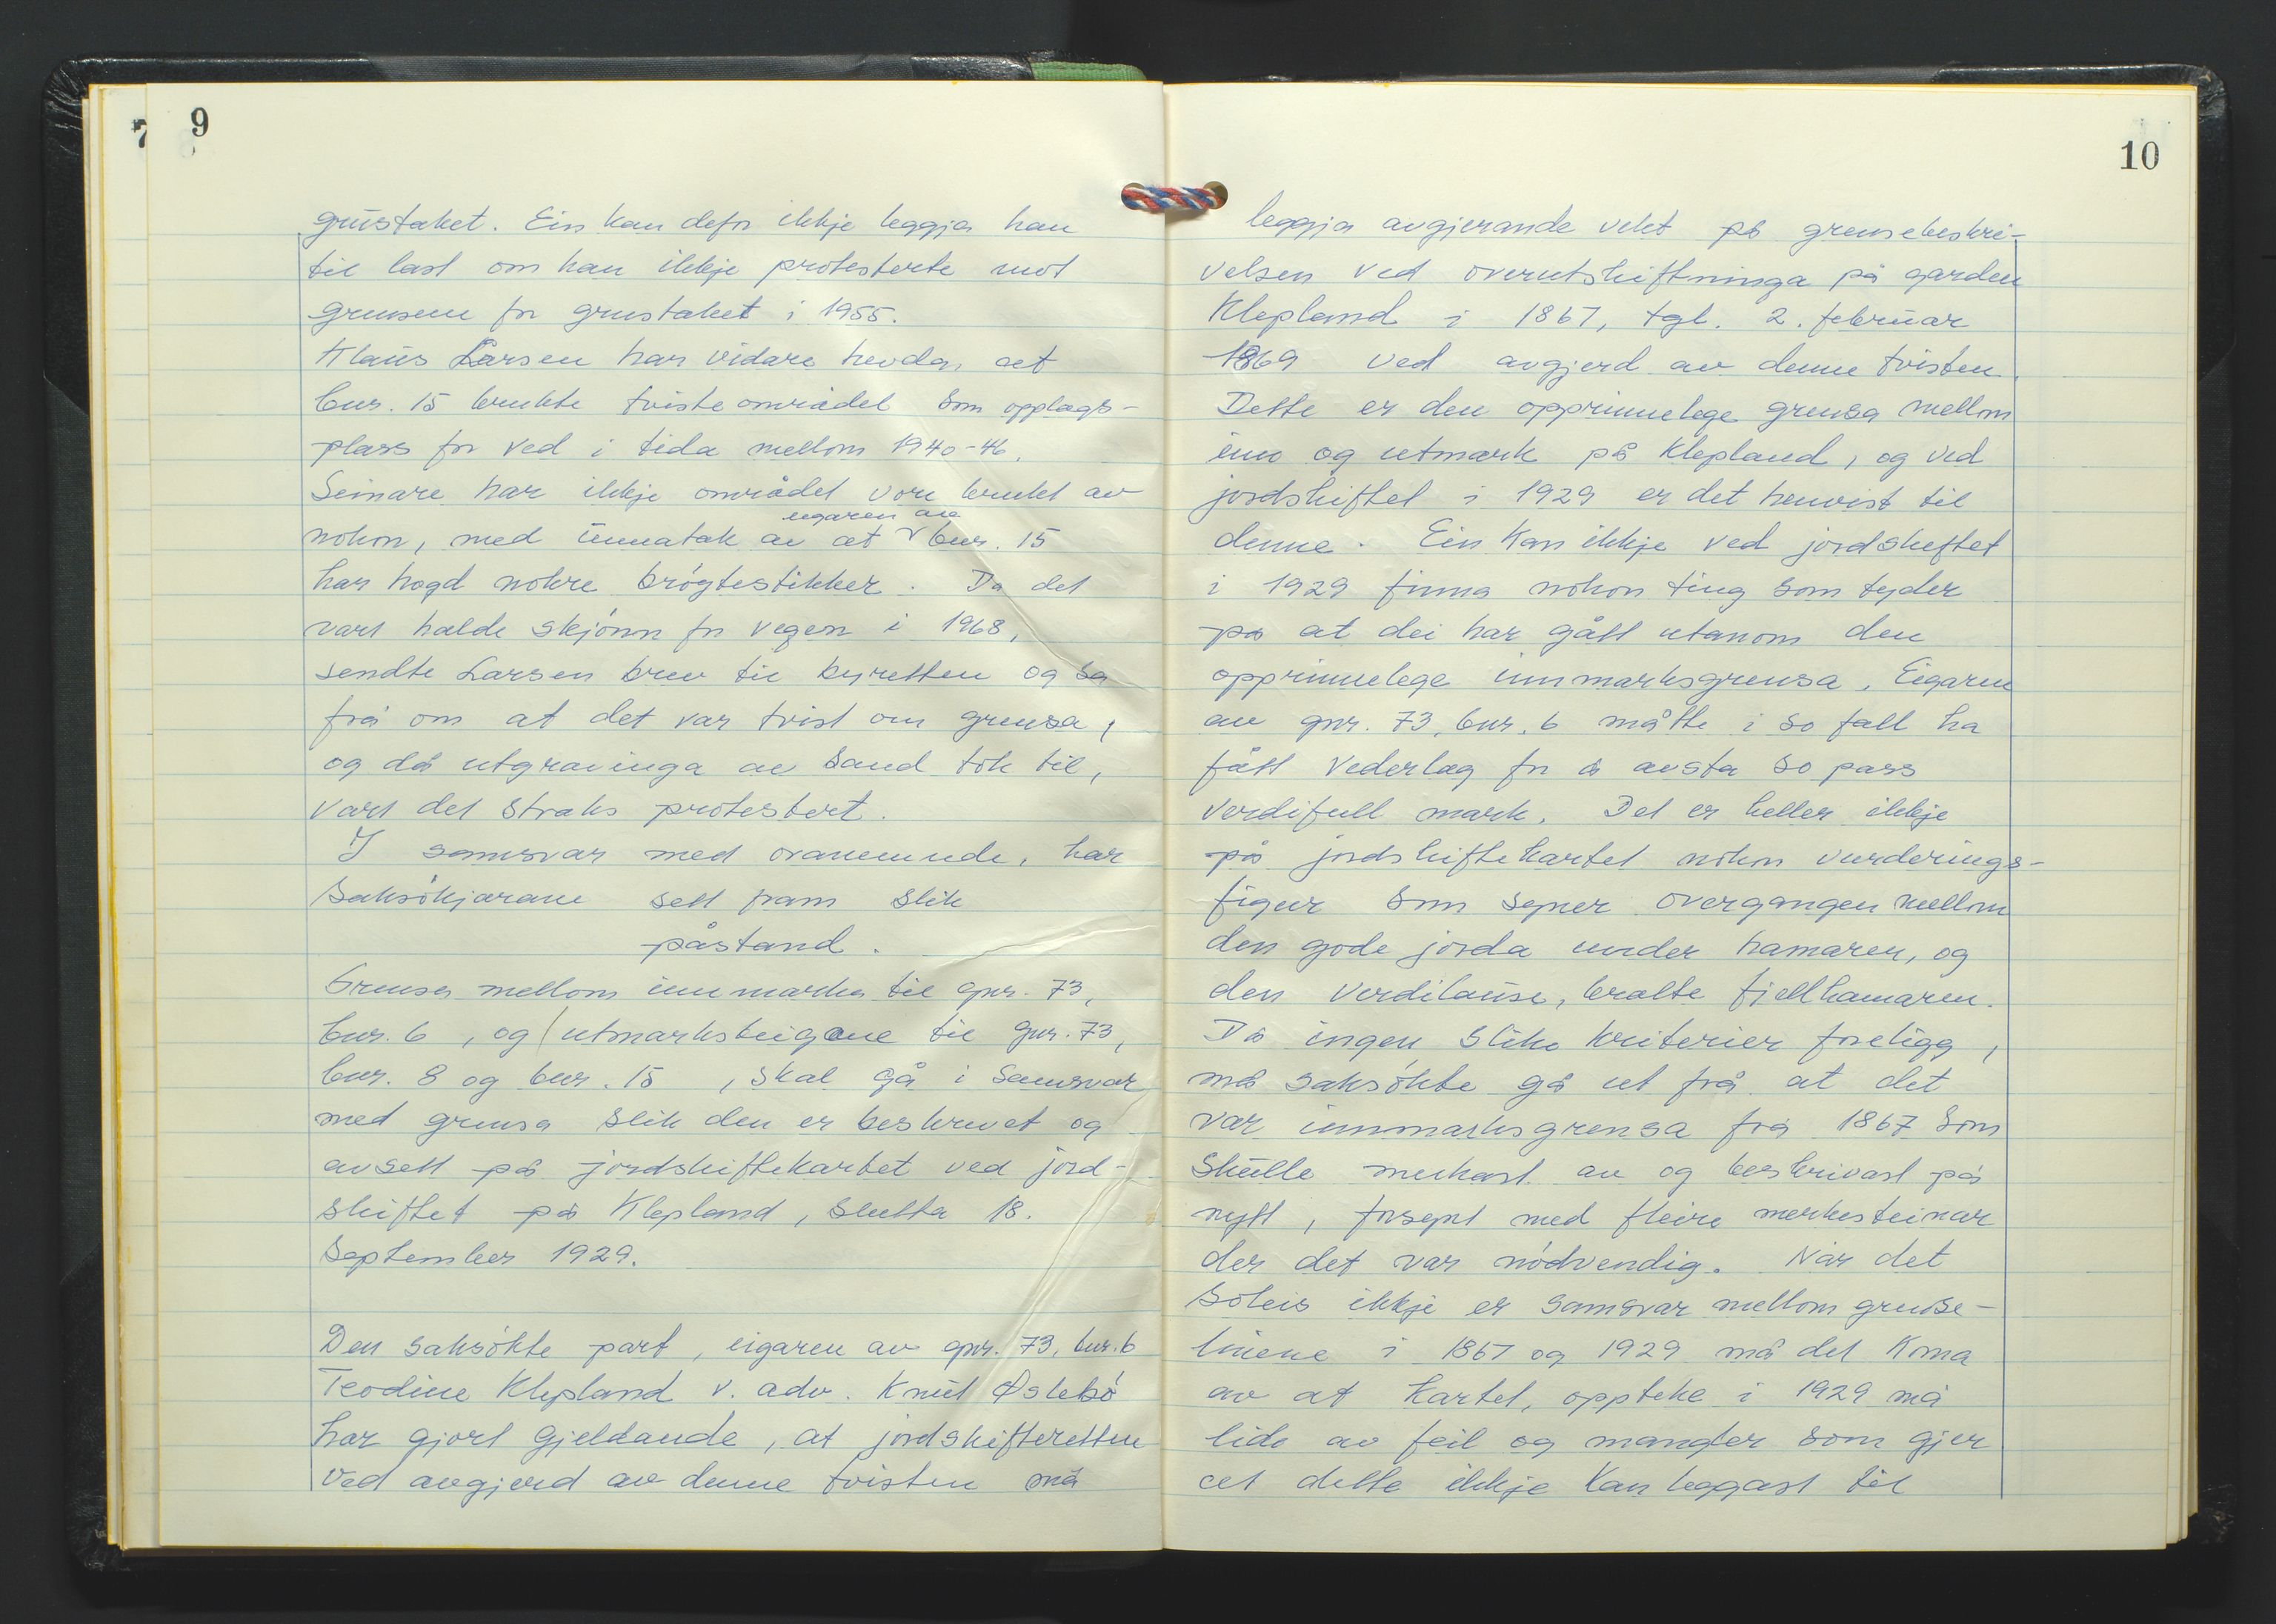 7 9
grustaket. Ein kan defor ikkje leggja han
til last om han ikkje protesterte mot
grensene for grustaket i 1955.
Klaus Larsen har vidare hevda, at
bnr. 15 brukte tvisteområdet som opplags-
plass for ved i tida mellom 1940-46.
Seinare har ikkje området vore brukt av
eigaren av
nokon, med unnatak av at bnr. 15
har hogd nokre brøytestikker. Da det
vart halde skjønn for vegen i 1968,
sendte Larsen brev til byretten og sa
frå om at det var tvist om grensa,
og då utgravinga av sand tok til,
vart det straks protestert.
I samsvar med ovanemnde, har
saksøkjarane sett fram slik
påstand.
Grensa mellom innmarka til gnr. 73,
bnr. 6, og utmarksteigane til gnr. 73,
bnr. 8 og bnr. 15, skal gå i samsvar
med grensa slik den er beskrevet og
avsett på jordskiftekartet ved jord-
skiftet på Klepland, slutta 18.
September 1929.
Den saksøkte part, eigaren av gnr. 73, bnr. 6
Teodine Klepland v. adv. Knut Øslebø
har gjort gjeldande, at jordskifteretten
ved avgjerd av denne tvisten må
10
leggja avgjerande vekt på grensebeskri-
velsen ved overutskiftninga på garden
Klepland i 1867, tgl. 2. februar
1869 ved avgjerd av denne tvisten.
Dette er den opprinnelege grensa mellom
inn og utmark på Klepland, og ved
jordskiftet i 1929 er det henvist til
denne. Ein kan ikkje ved jordskeftet
i 1929 finna nokon ting som tyder
på at dei har gått utanom den
opprinnelege innmarksgrensa. Eigaren
av gnr. 73, bnr. 6 måtte i so fall ha
fått vederlag for å avsta so pass
verdifull mark. Det er heller ikkje
på jordskiftekartet nokon vurderings-
figur som syner overgangen mellom
den gode jorda under hamaren, og
den verdilause, bratte fjellhamaren.
Då ingen slike kriterier foreligg,
må saksøkte gå ut frå at det
var innmarksgrensa frå 1867 som
skulle merkast av og beskrivast på
nytt, forsynt med fleire merkesteinar
der det var nødvendig. Når det
soleis ikkje er samsvar mellom grense-
linene i 1867 og 1929 må det koma
av at kartet, oppteke i 1929 må
lida av feil og mangler som gjer
at dette ikkje kan leggast til